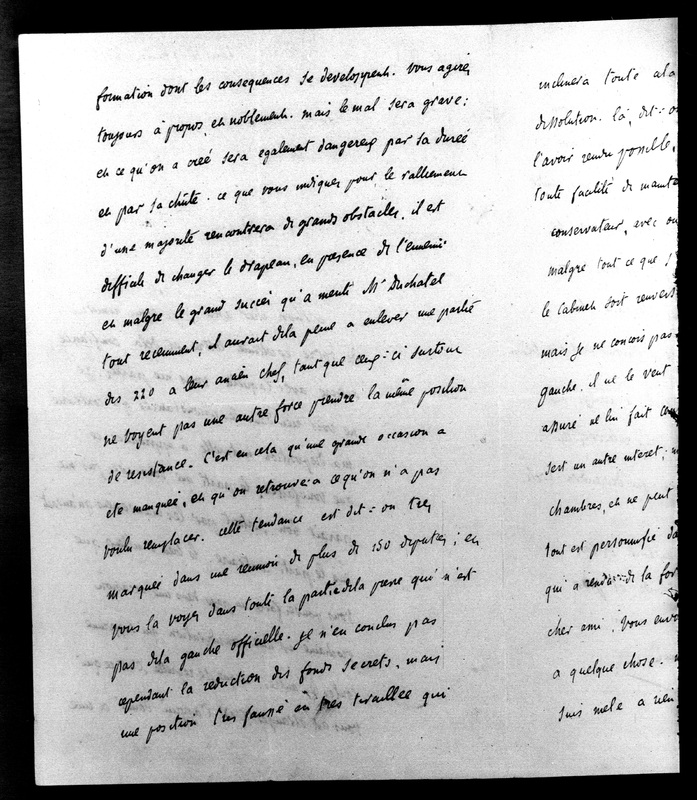 formation dont les consequences se developpent. Vous agirez
toujours à propos, et noblement. mais le mal sera grave:
et ce qu'on a créé sera egalement dangereux par sa durée
et par sa chûte. ce que vous indiquez pour le ralliement
d'une majorité rencontrera de grands obstacles. il est
difficile de changer le drapeau, en presence de l'ennemi.
et malgre le grand succès qu'a merité Mr Duchatel
tout recemment, il aurait dela peine a enlever une partie
des 220 a leur ancien chef, tant que ceux-ci surtout
ne voyent pas une autre force prendre la même position
de resistance. C'est en cela qu'une grande occasion a
ete manquée, et qu'on retrouvera ce qu'on n'a pas
voulu remplacer. cette tendance est dit-on tres
marquée dans une reunion de plus de 150 deputés; et
vous la voyez dans toute la partie dela presse qui n'est
pas dela gauche officielle. je n'en conclus pas
cependant la reduction des fonds secrets, mais
une position tres fausse et tres tiraillée qui
inclinera toute
dissolution. là, dit-on
l'avoir rendu possible,
toute facilité de
conservateur, avec
malgre tout ce que
le Cabinet soit
mais je ne concois pas
gauche. il ne le veut
assuré ne lui fait
sert un autre interet;
chambres, et ne peut
tout est personnifié
qui a de la
cher ami. Vous
a quelque chose.
suis mele a rien